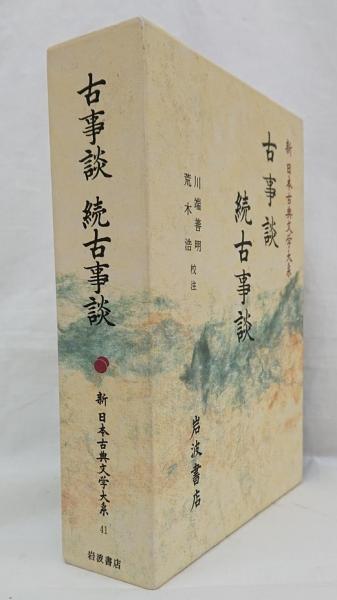 新 日本古典文学大系
古事談
続古事談
川端善明
荒木浩
校注
岩波書店
古事談 続古事談
新 日本古典文学大系
41
岩波書店